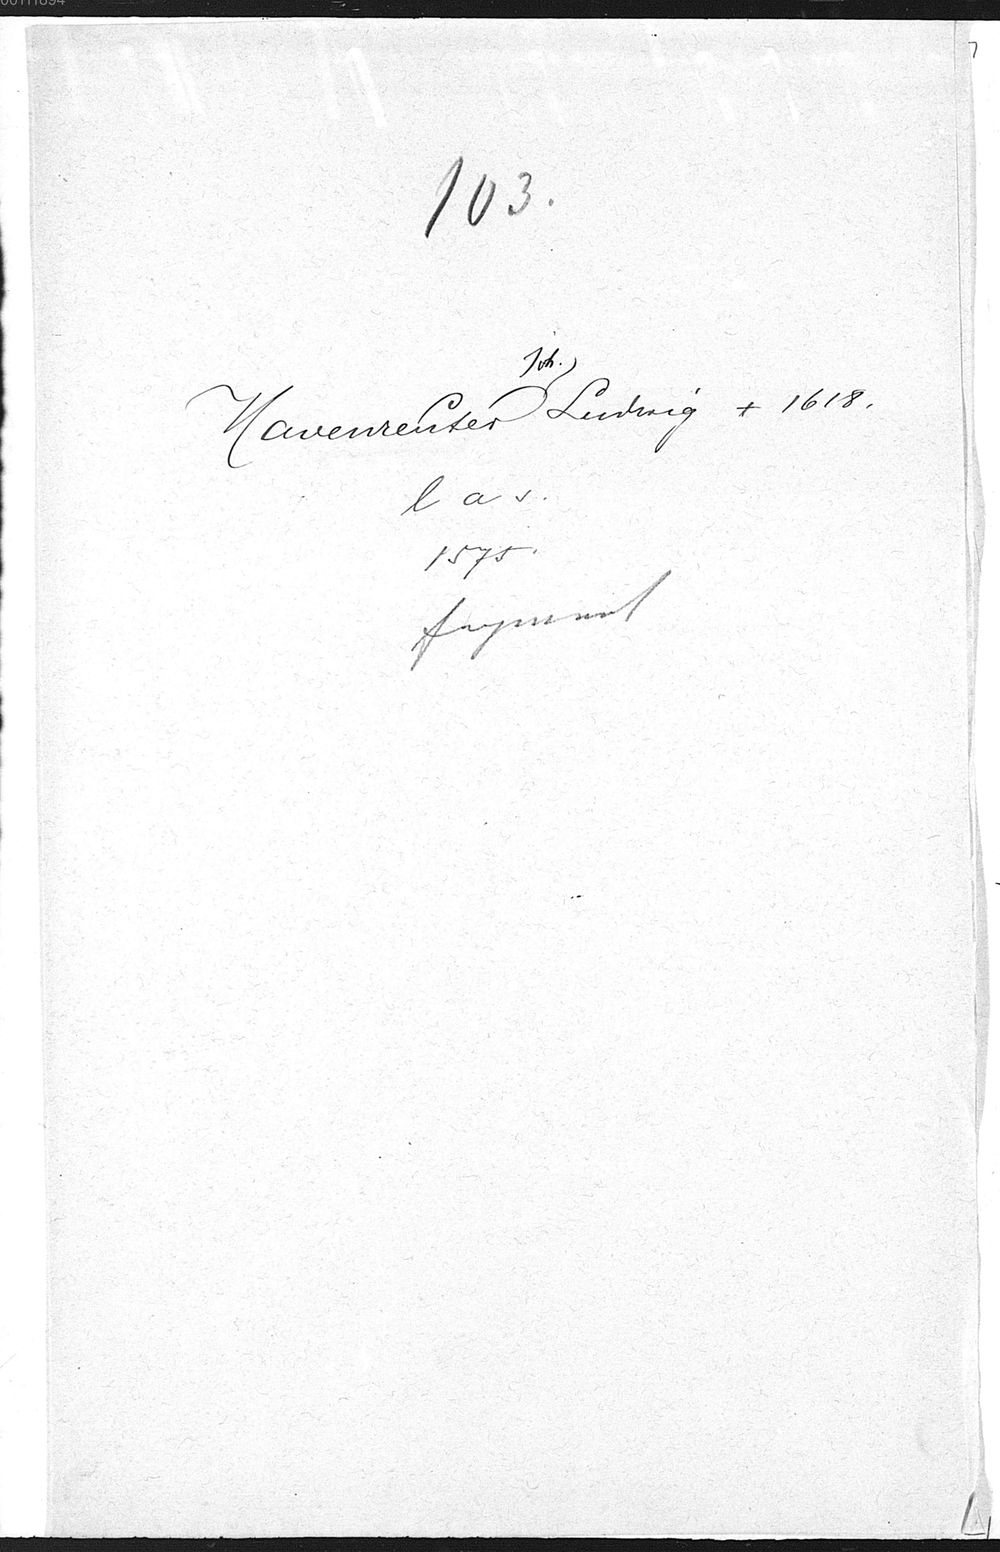 00111894
103.
Joh.
Havenreuter Ludwig + 1618.
l a s.
1575.
fragment